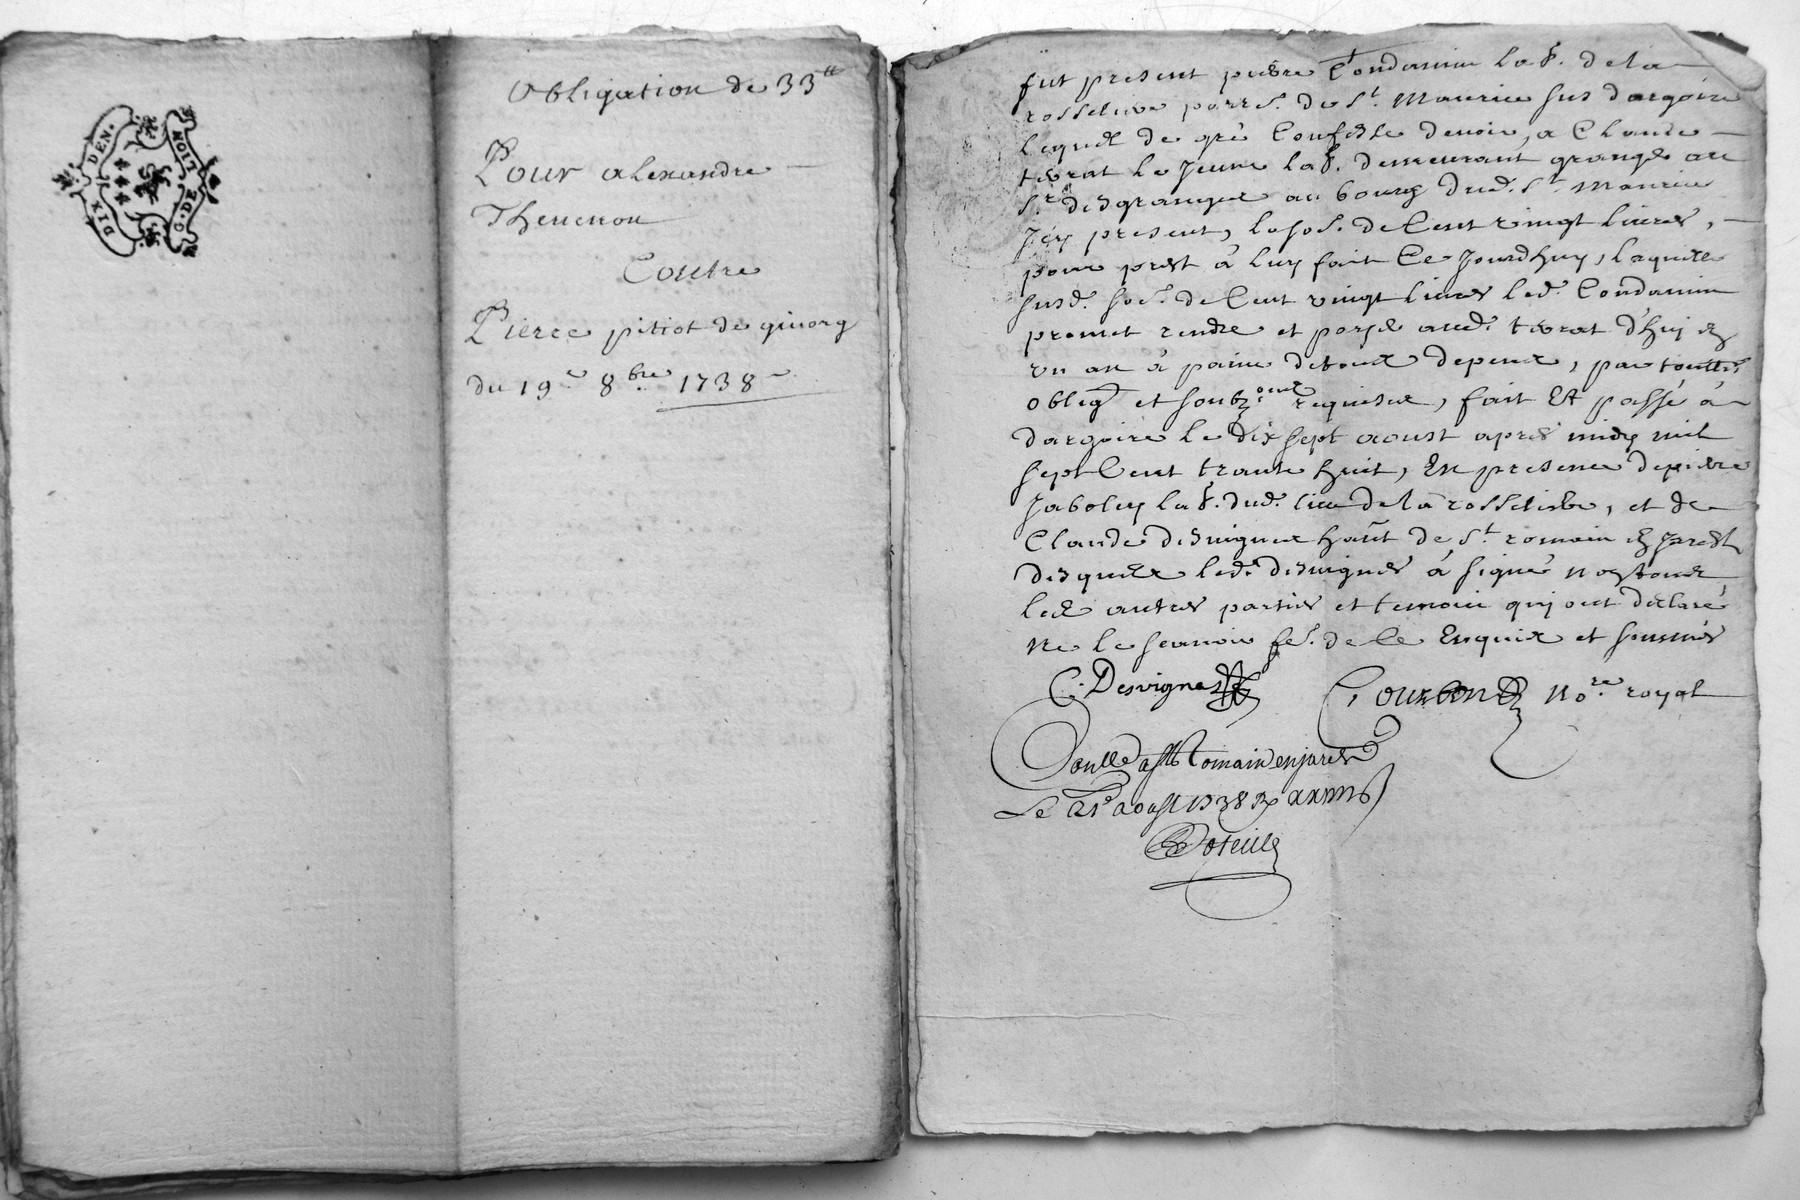 DIX DEN.
G. DE LION
Obligation de 33tt
Pour alexandre
Thevenon
Contre
Pierre pitiot de givorg
du 19e 8bre 1738
fut present pierre Condamin lab. de la
rosselive parre. de St. Maurice sus dargoire
lequel de gré Confesse devoir, a Claude
tevrat le Jeune lab. demeurant granger au
Sr. desgranges au bourg dud. St. Maurice
Jcy present, la so.e de Cent vingt livres,
pour prest à luy fait Ce Jourdhuy, laquelle
susd. so.e de Cent vingt livres led. Condamin
promet rendre et payer aud. tevrat d'huy en
un an à paine de tous depens, par toutte
obligōn et soubz.ons requises, fait Et passé à
dargoire le dix sept aoust apres midy mil
sept Cent trante huit, En presence de pierre
Jaboley lab. dud. lieu de la rosselive, et de
Claude desvignes hañt de St. romain en Jarest
desquels led. desvignes à signé non
les autres parties et temoin qui ont déclaré
ne le scavoir fe. de Ce Enquis et sommés
C. Desvignes Gourbon nore. royal
Conllé a St Romain en jarest
Le 21e aoust 1738